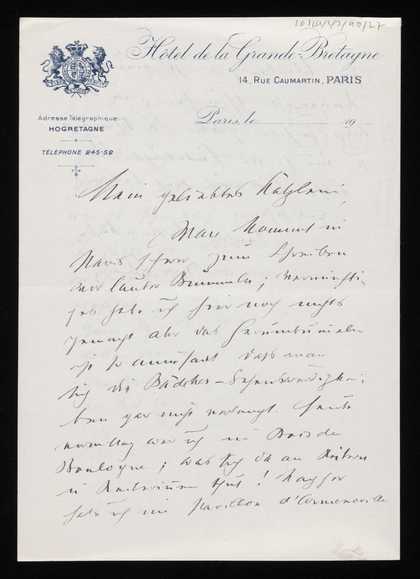 Hôtel de la Grande-Bretagne
14, RUE CAUMARTIN, PARIS
Adresse Télégraphique
HOGRETAGNE
TÉLÉPHONE 245-52
Paris, le 19
Mein geliebtes Katzlein,
Man kommt in
Paris schwer zum Schreiben
vor lauter Bummeln;
hab ich hier noch nichts
gemacht aber das Herumbummeln
ist so amüsant dass man
sich die Bädeker-Sehenswürdigkei-
ten gar nicht verlangt. Heute
vormittag war ich im Bois de
Boulogne; was sich da an Reitern
u. Reiterinnen tut!
hab ich im Pavillon d'Armenonville